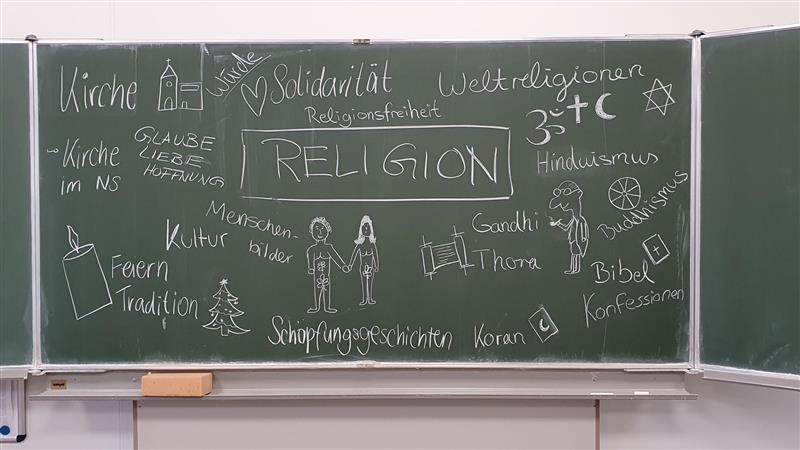 Kirche
Würde
Solidarität
Weltreligionen
Religionsfreiheit
RELIGION
GLAUBE
LIEBE
HOFFNUNG
Kirche
im NS
Hinduismus
Buddhismus
Kultur
Menschen-
bilder
Gandhi
Thora
Bibel
Konfessionen
Feiern
Tradition
Schöpfungsgeschichten
Koran